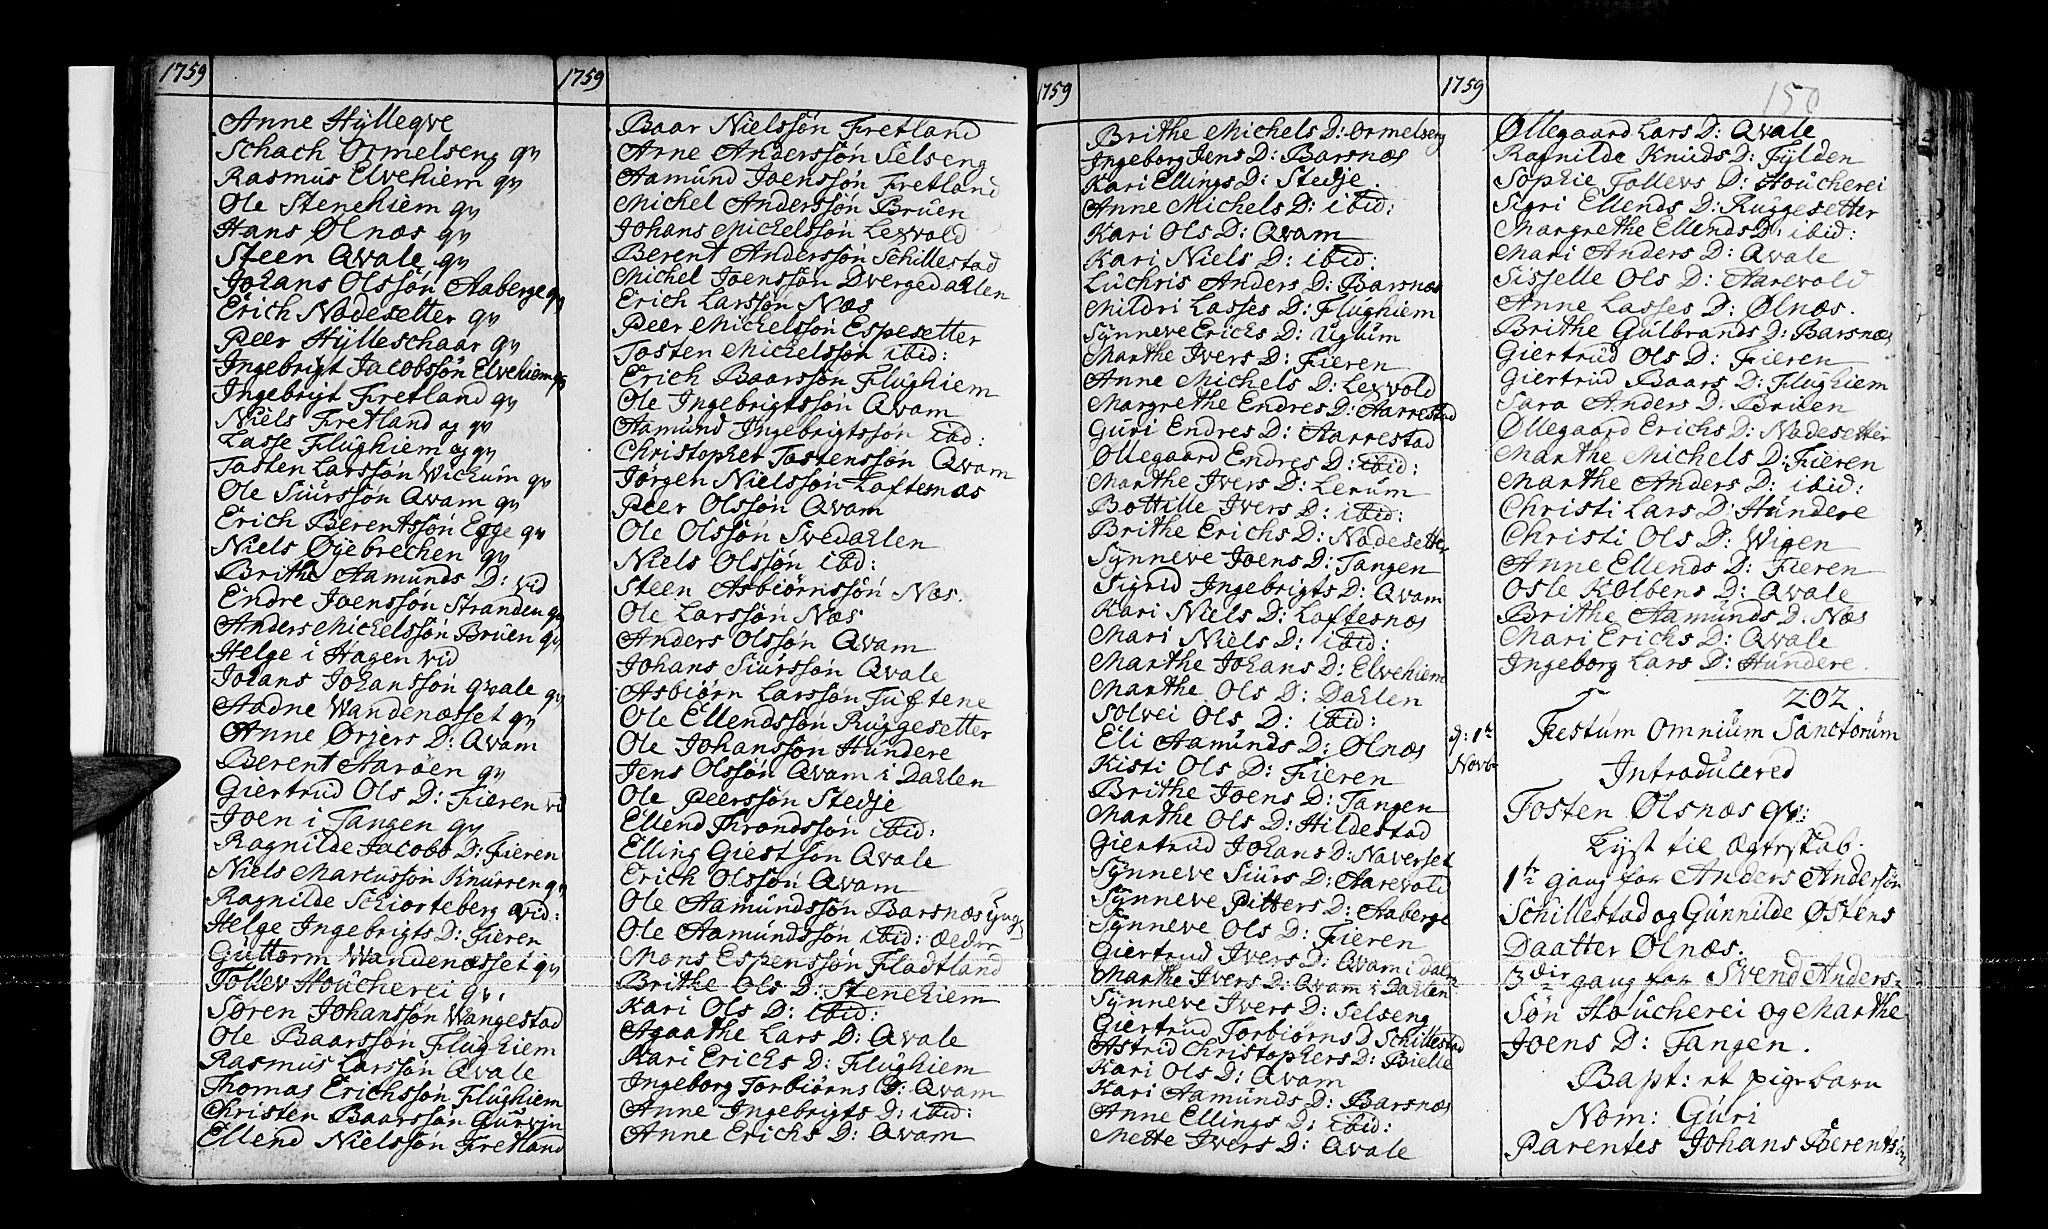 1759
Anne Hÿlleqve
Schach Ormelseng qv
Rasmus Elvehiem qv
Ole Stenehiem qv
Hans Ølnæs qv
Steen Qvale qv
Johans Olssøn Aaberge qv
Erich Nadesetter qv
Peer Hÿlleschaar qv
Ingebrigt Jacobssøn Elvehiem qv
Ingebrigt Fretland qv
Niels Fretland og qv
Lasse Flughiem og qv
Tosten Larssøn Wichum qv
Ole Siurssøn Qvam qv
Erich Berentssøn Egge qv
Niels Øÿebrechen qv
Brithe Aamunds D: vid
Endre Joenssøn Stranden qv
Anders Michelssøn Bruen qv
Helge i Hagen vid
Johans Johanssøn Qvale qv
Aadne Wandenæsset qv
Anne Ørjers D: Qvam
Berent Aarøen qv
Giertrud Ols D: Fieren vid
Joen i Tangen qv
Ragnilde Jacobs D: Fieren
Niels Marcussøn Knurren qv
Ragnilde Schiorteberg vid:
Helge Ingebrigts D: Fieren
Guttorm Wandenæsset qv
Tollev Houcherei qv.
Søren Johanssøn Wangestad
Ole Baarssøn Flughiem
Rasmus Larssøn Qvale
Thomas Erichssøn Flughiem
Christen Baarssøn Gurvin
Ellend Nielssøn Fretland
1759
Baar Nielssøn Fretland
Arne Anderssøn Selseng
Aamund Joenssøn Fretland
Michel Anderssøn Bruen
Johans Michelssøn Lexvold
Berent Anderssøn Schillestad
Michel Joenssøn Dvergedahlen
Erich Larssøn Næs
Peer Michelssøn Espesetter
Tosten Michelssøn ibid:
Erich Baarssøn Flughiem
Ole Ingebrigtssøn Qvam
Aamund Ingebrigtssøn ibd:
Christopher Tostenssøn Qvam
Jørgen Nielssøn Loftesnæs
Peer Olssøn Qvam
Ole Olssøn Svedahlen
Niels Olssøn ibd:
Steen Asbiørnssøn Næs.
Ole Larssøn Næs
Anders Olssøn Qvam
Johans Siurssøn Qvale
Asbiørn Larssøn Tuftene
Ole Ellendssøn Ruggesetter
Ole Johanssøn Hundere
Jens Olssøn Qvam i Dahlen
Ole Peerssøn Stedje
Ellend Throndssøn ibid:
Elling Giestsøn Qvale
Erich Olssøn Qvam
Ole Aamundssøn Barsnæs Ÿngs
Ole Aamundssøn ibid: ældre
Mons Espenssøn Fladtland
Brithe Ols D: Stenehiem
Kari Ols D: ibid:
Agaathe Lars D: Qvale
Kari Erichs D: Flughiem
Ingeborg Torbiørns D: Qvam
Anne Ingebrigts D: ibid:
Anne Erichs D: Qvam
1759
Brithe Michels D: Ormelseng
Ingeborg Jens D: Barsnæs
Kari Ellings D: Stedje.
Anne Michels D: ibid:
Kari Ols D: Qvam
Kari Niels D: ibid:
Luchris Anders D: Barsnæs
Mildri Lasses D: Flughiem
Sÿnneve Erichs D: Uglum
Marthe Ivers D: Fieren
Anne Michels D: Lexvold
Margrethe Endres D: Aarrestad
Guri Endres D: Aarrestad
Øllegaard Endres D: ibid:
Marthe Ivers D: Lerum
Bottille Ivers D: ibid:
Brithe Erichs D: Nadesetter
Sÿnneve Joens D: Tangen
Sigrid Ingebrigts D: Qvam
Kari Niels D: Loftesnæs
Mari Niels D: ibid:
Marthe Johans D: Elvehiem
Marthe Ols D: Dahlen
Solvei Ols D: ibid:
Eli Aamunds D: Ølnæs
Kisti Ols D: Fieren
Brithe Joens D: Tangen
Marthe Ols D: Hildestad
Giertrud Johans D: Naverset
Sÿnneve Siurs D: Aarevold
Sÿnneve Pitters D: Aaberge
Sÿnneve Ols D: Fieren
Giertrud Ivers D: Qvam i Dalen
Marthe Ivers D: Qvam i Dahlen
Sÿnneve Ivers D: Selseng
Giertrud Torbiørns D Schillestad
Astrid Christophers D: Bielle
Kari Ols D: Qvam
Kari Aamunds D: Barsnæs
Anne Ellings D: ibid:
Mette Ivers D: Qvale
1759
150
Øllegaard Lars D: Qvale
Ragnilde Knuds D: Fÿlden
Sophie Tollevs D: Houcherei
Sigri Ellends D: Ruggesetter
Margrethe Ellends D: ibid:
Mari Anders D: Qvale
Sisselle Ols D: Aarevold
Anne Lasses D: Ølnæs.
Brithe Gulbrands D: Barsnæs
Giertrud Ols D: Fieren
Giertrud Baars D: Flughiem
Sara Anders D: Bruen
Øllegaard Erichs D: Nadesetter
Marthe Michels D: Fieren
Marthe Anders D: ibid:
Christi Lars D: Hundere
Christi Ols D: Wigen
Anne Ellends D: Fieren
Osle Kolbens D: Qvale
Brithe Aamunds D. Næs
Mari Erichs D: Qvale
Ingeborg Lars D: Hundere.
202.
d: 1te Novbr
Festum Omnium Sanctorum
Introducered
Tosten Ølsnæs qv:
Lyst til ægteskab.
1te gang for Anders Andersøn
Schillestad og Gunnilde Østens
Daatter Ølnæs.
3die gang for Svend Anders-
Søn Houcherei og Marthe
Joens D: Tangen.
Bapt: et pigebarn
Nom: Guri
Parentes Johans Berentsøn